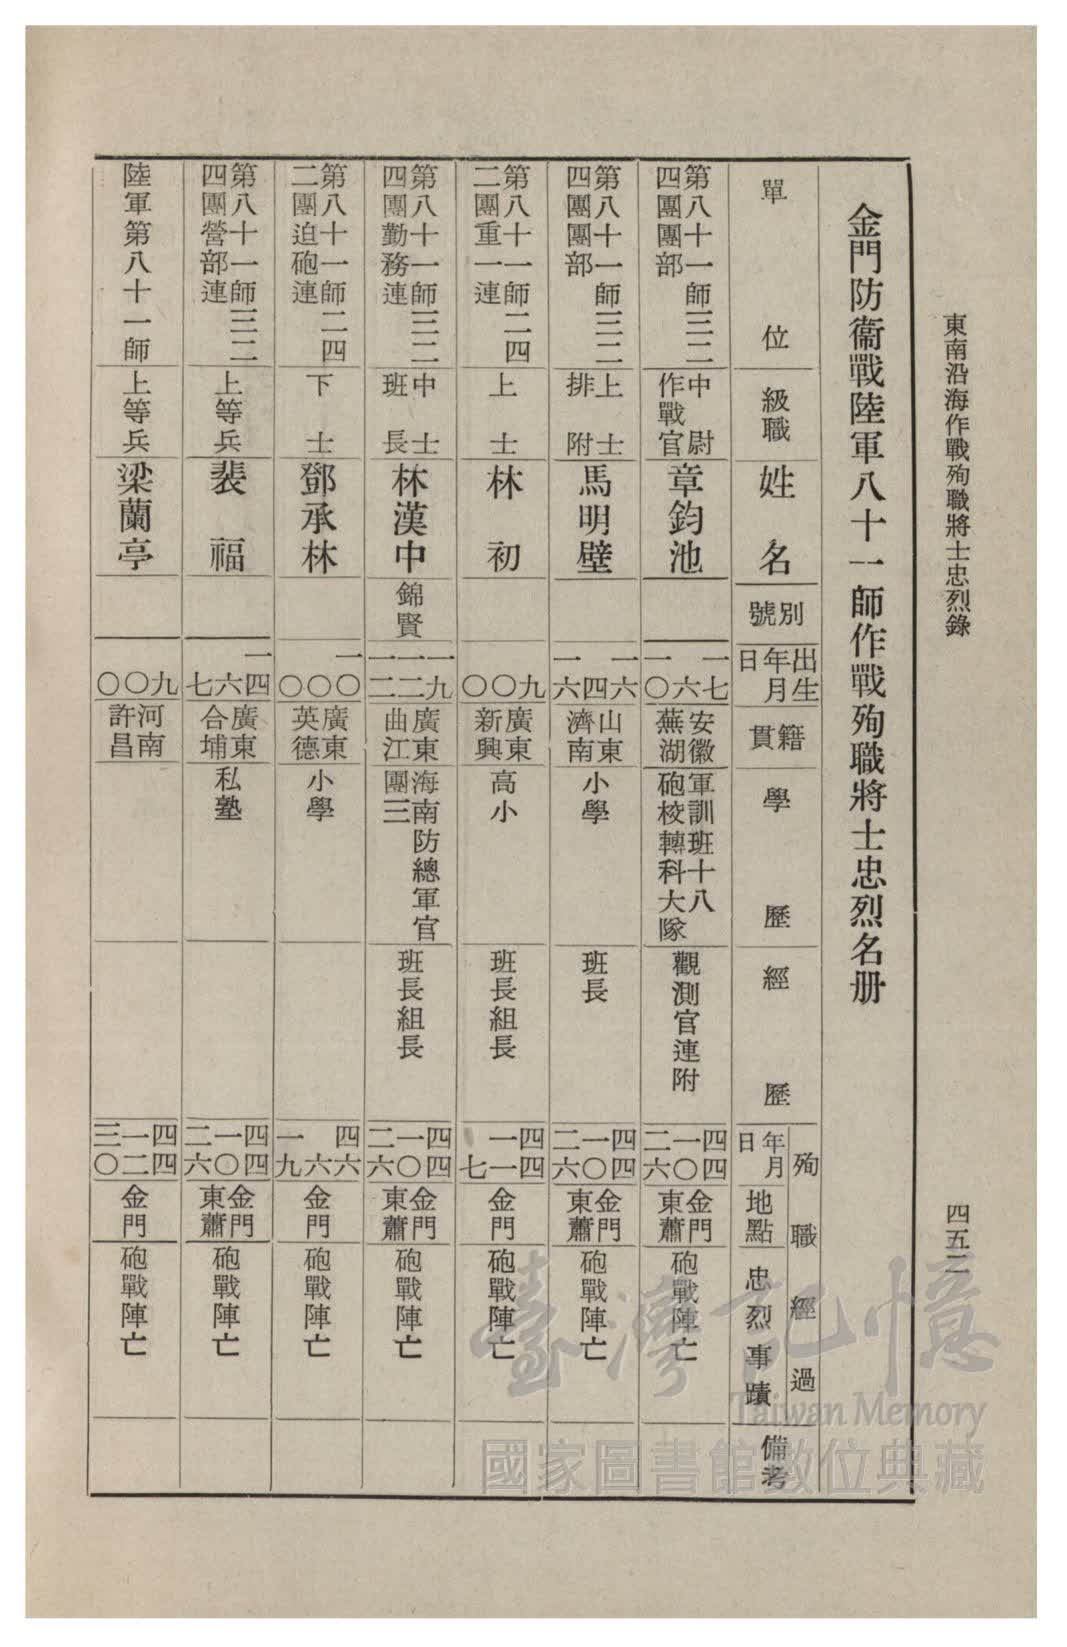 東南沿海作戰殉職將士忠烈錄
四五三
金門防衞戰陸軍八十一師作戰殉職將士忠烈名册
單位
級職
姓名
別號
出生
年月
日
籍貫
學歷
經歷
殉職經過
年月
日
地點
忠烈事蹟
備考
第八十一師三二
四團團部
中尉
作戰官
章鈞池
一七
六
一〇
安徽
蕪湖
軍訓班十八
砲校轉科大隊
觀測官連附
四四
一〇
二六
金門
東蕭
砲戰陣亡
第八十一師三二
四團團部
上士
排附
馬明壁
一六
四
一六
山東
濟南
小學
班長
四四
一〇
二六
金門
東蕭
砲戰陣亡
第八十一師二四
二團重一連
上士
林初
九
〇
〇
廣東
新興
高小
班長組長
四四
一一
七
金門
砲戰陣亡
第八十一師三二
四團勤務連
中士
班長
林漢中
錦賢
一九
一二
一二
廣東
曲江
海南防總軍官
團三
班長組長
四四
一〇
二六
金門
東蕭
砲戰陣亡
第八十一師二四
二團迫砲連
下士
鄧承林
一〇
〇
〇
廣東
英德
小學
四六
六
一九
金門
砲戰陣亡
第八十一師三二
四團營部連
上等兵
裴福
一四
六
七
廣東
合埔
私塾
四四
一〇
二六
金門
東蕭
砲戰陣亡
陸軍第八十一師
上等兵
梁蘭亭
九
〇
〇
河南
許昌
四四
一二
三〇
金門
砲戰陣亡
臺灣記憶
Taiwan Memory
國家圖書館數位典藏